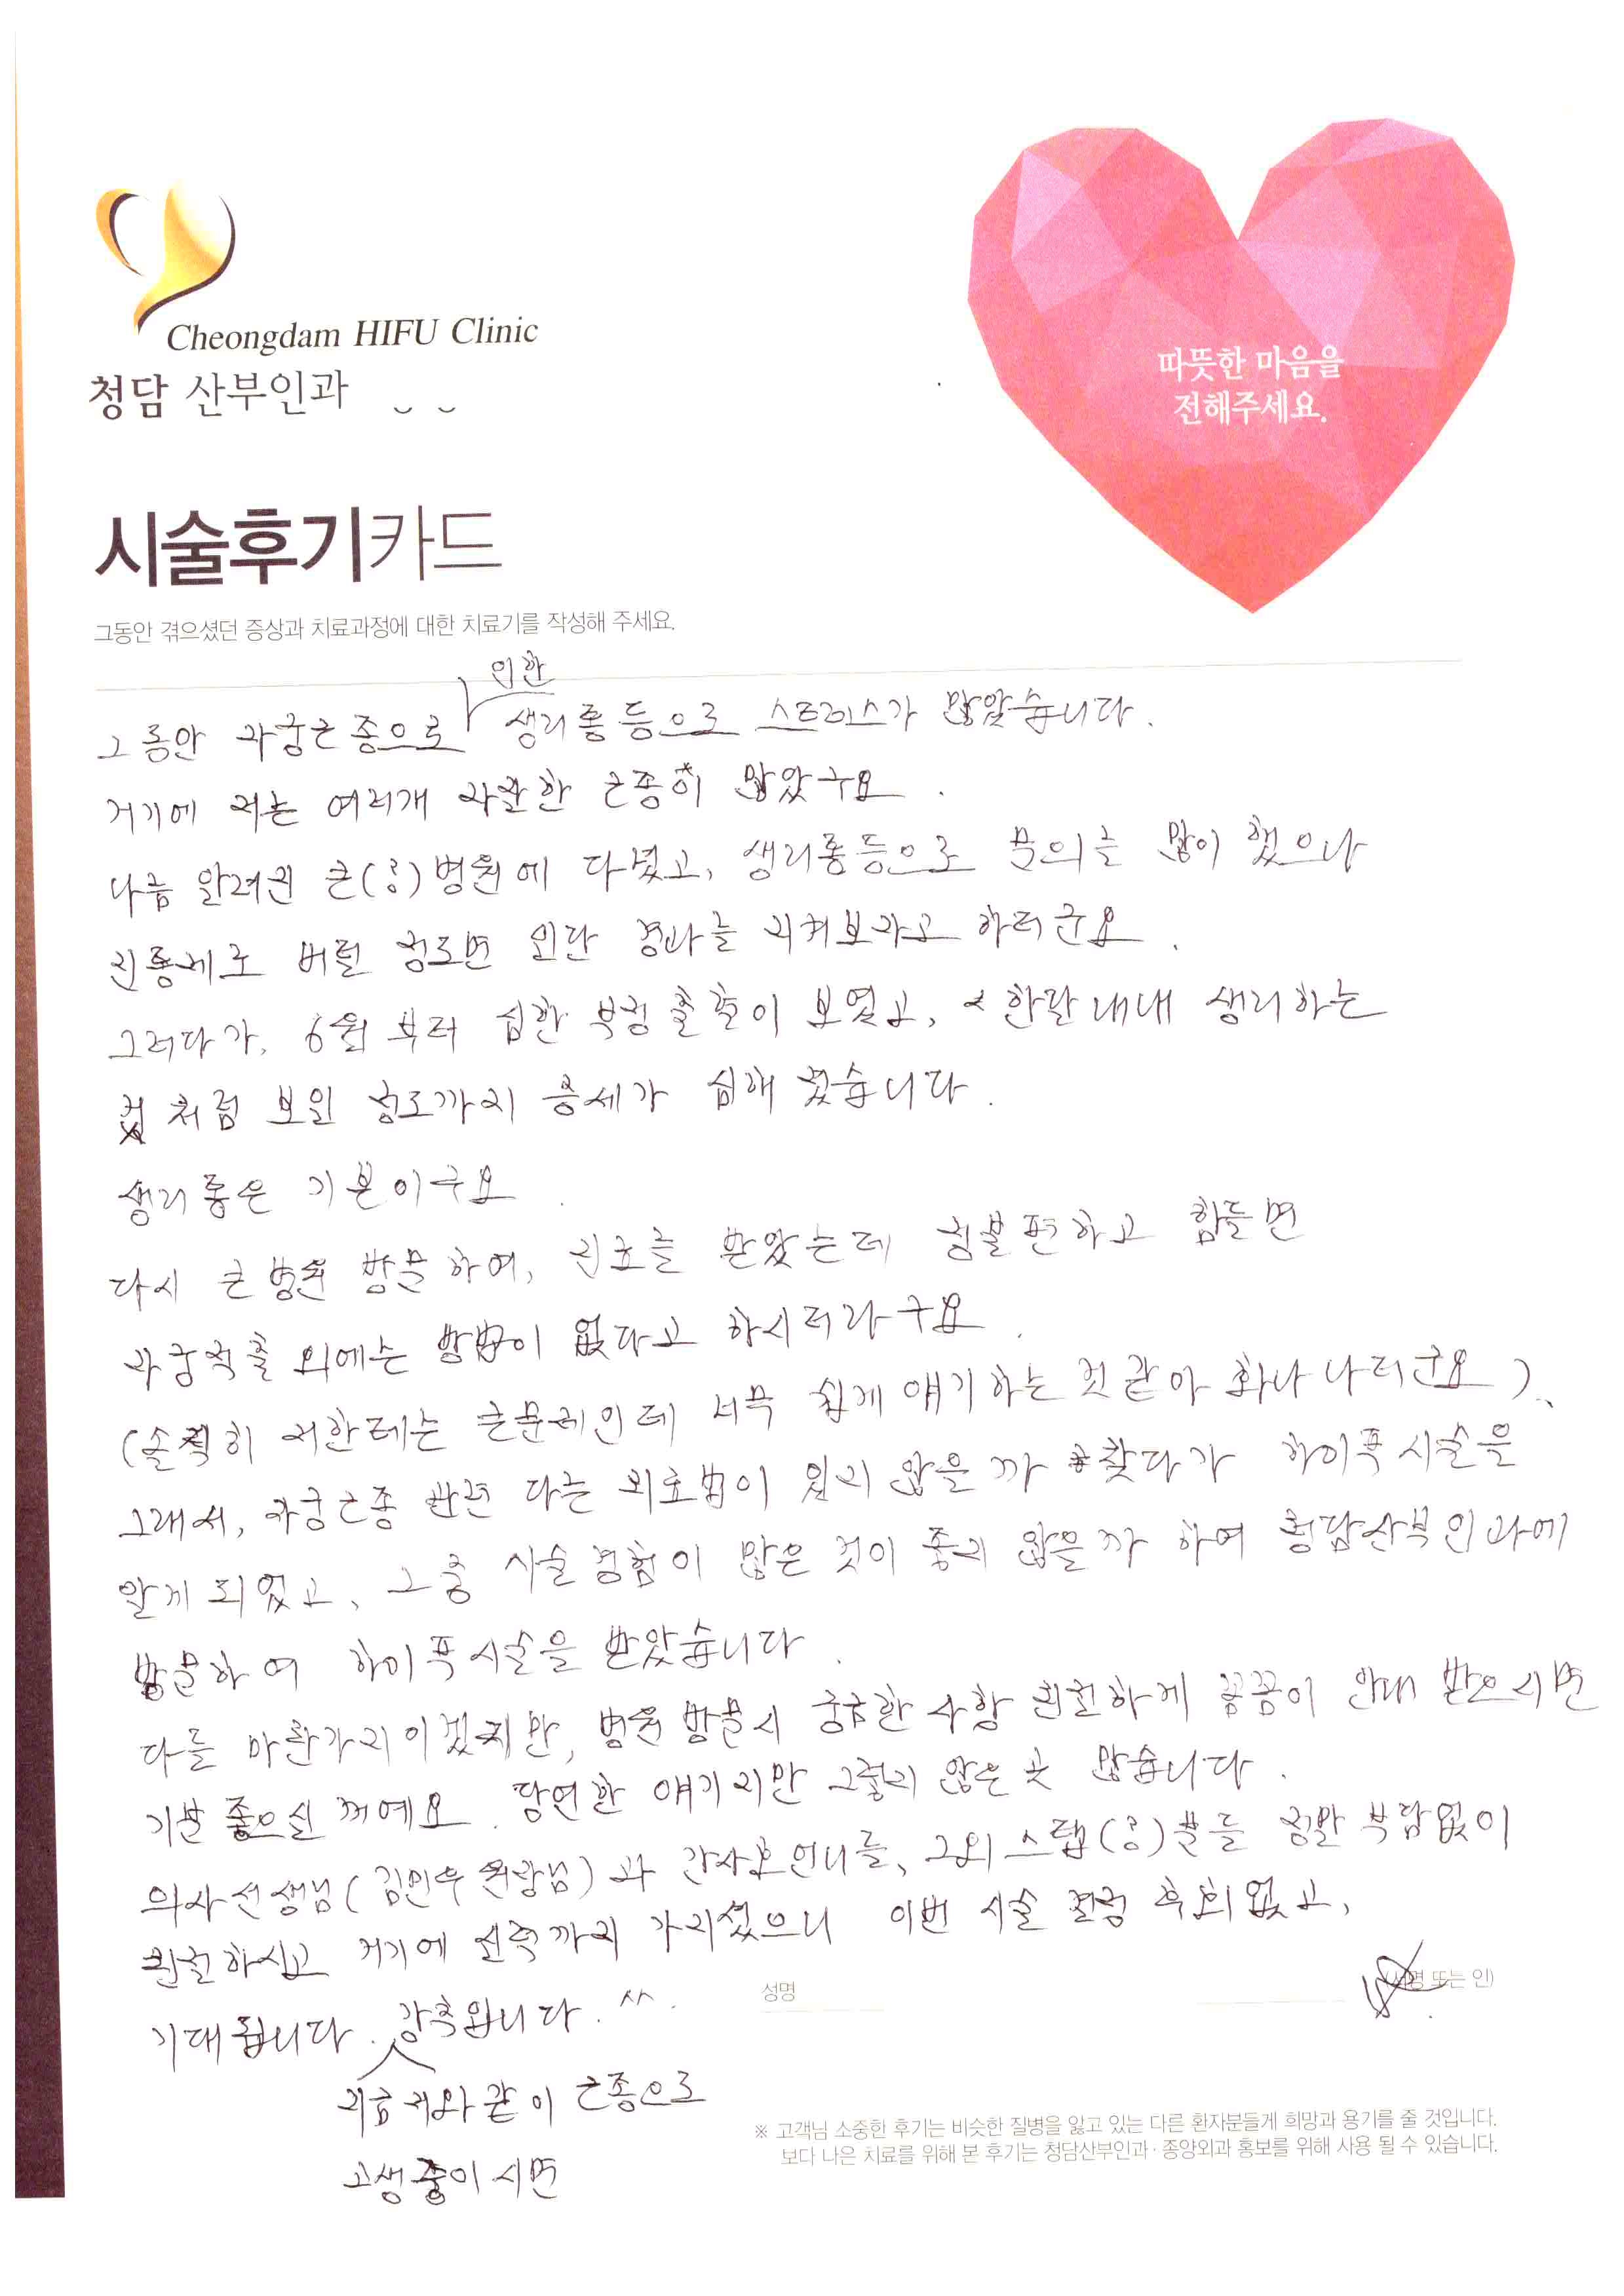 Cheongdam HIFU Clinic
청담 산부인과
따뜻한 마음을
전해주세요.
시술후기카드
그동안 겪으셨던 증상과 치료과정에 대한 치료기를 작성해 주세요.
인한
그동안 자궁근종으로 생리통등으로 스트레스가 많았습니다.
거기에 저는 여러개 자잘한 근종이 많았구요.
나름 알려진 큰(?)병원에 다녔고, 생리통등으로 문의는 많이 했으나
진통제로 버틸 정도면 일단 경과를 지켜보자고 하더군요.
그러다가, 6월부터 심한 부정출혈이 보였고, 한달내내 생리하는
것처럼 보일 정도까지 증세가 심해졌습니다.
생리통은 기본이구요.
다시 큰병원 방문하여, 진료를 받았는데 정불편하고 힘들면
자궁적출 외에는 방법이 없다고 하시더라구요.
(솔직히 저한테는 큰문제인데 너무 쉽게 얘기하는 것 같아 화나 나더군요).
그래서, 자궁근종 관련 다른 치료법이 있지 않을까 찾다가 하이푸시술을
알게 되었고, 그중 시술경험이 많은 것이 좋지 않을까 하여 청담산부인과에
방문하여 하이푸시술을 받았습니다.
다들 마찬가지이겠지만, 병원 방문시 궁금한 사항 친절하게 꼼꼼이 안내 받으시면
기분 좋으실 꺼예요. 당연한 얘기지만 그렇지 않은 곳 많습니다.
의사선생님(김민우 원장님)과 간호사언니들, 그외 스탭(?)분들 정말 부담없이
친절하시고 거기에 실력까지 가지셨으니 이번 시술 결정 후회없고,
기대됩니다. 강추입니다. ^^.
지금 저와 같이 근종으로
고생중이시면
성명
(서명 또는 인)
※ 고객님 소중한 후기는 비슷한 질병을 앓고 있는 다른 환자분들게 희망과 용기를 줄 것입니다.
보다 나은 치료를 위해 본 후기는 청담산부인과·종양외과 홍보를 위해 사용 될 수 있습니다.